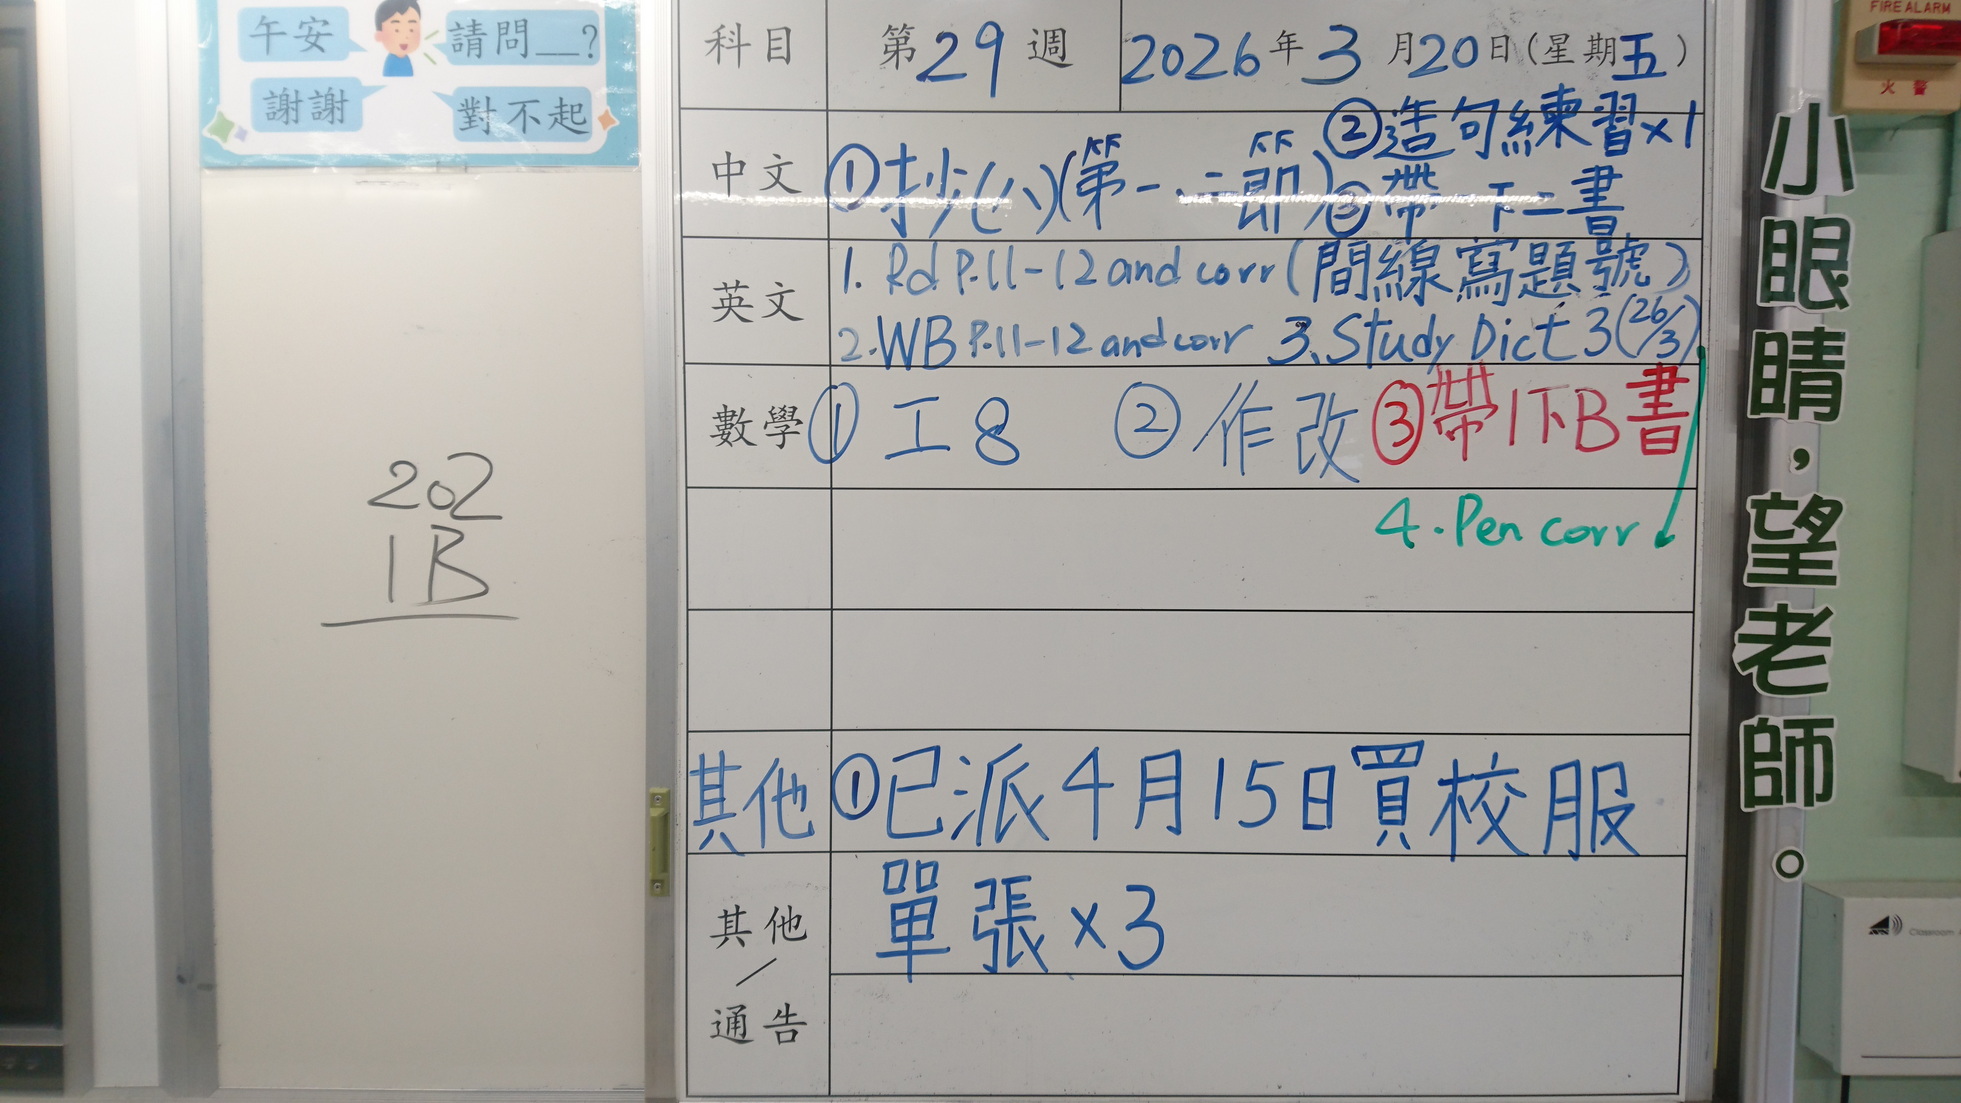 午安
請問__?
謝謝
對不起
202
1B
科目 第29週 2026年3月20日(星期五)
中文 ①抄(八)(第一、二節) ②造句練習x1
③帶一下二書
英文 1. Rd P.11-12 and corr (間線寫題號)
2. WB P.11-12 and corr 3. Study Dict 3 (26/3)
數學 ① 工8 ② 作改 ③帶1下B書
4. Pen corr
其他 ①已派4月15日買校服
單張x3
其他/通告
小眼睛,望老師。
FIRE ALARM
火警